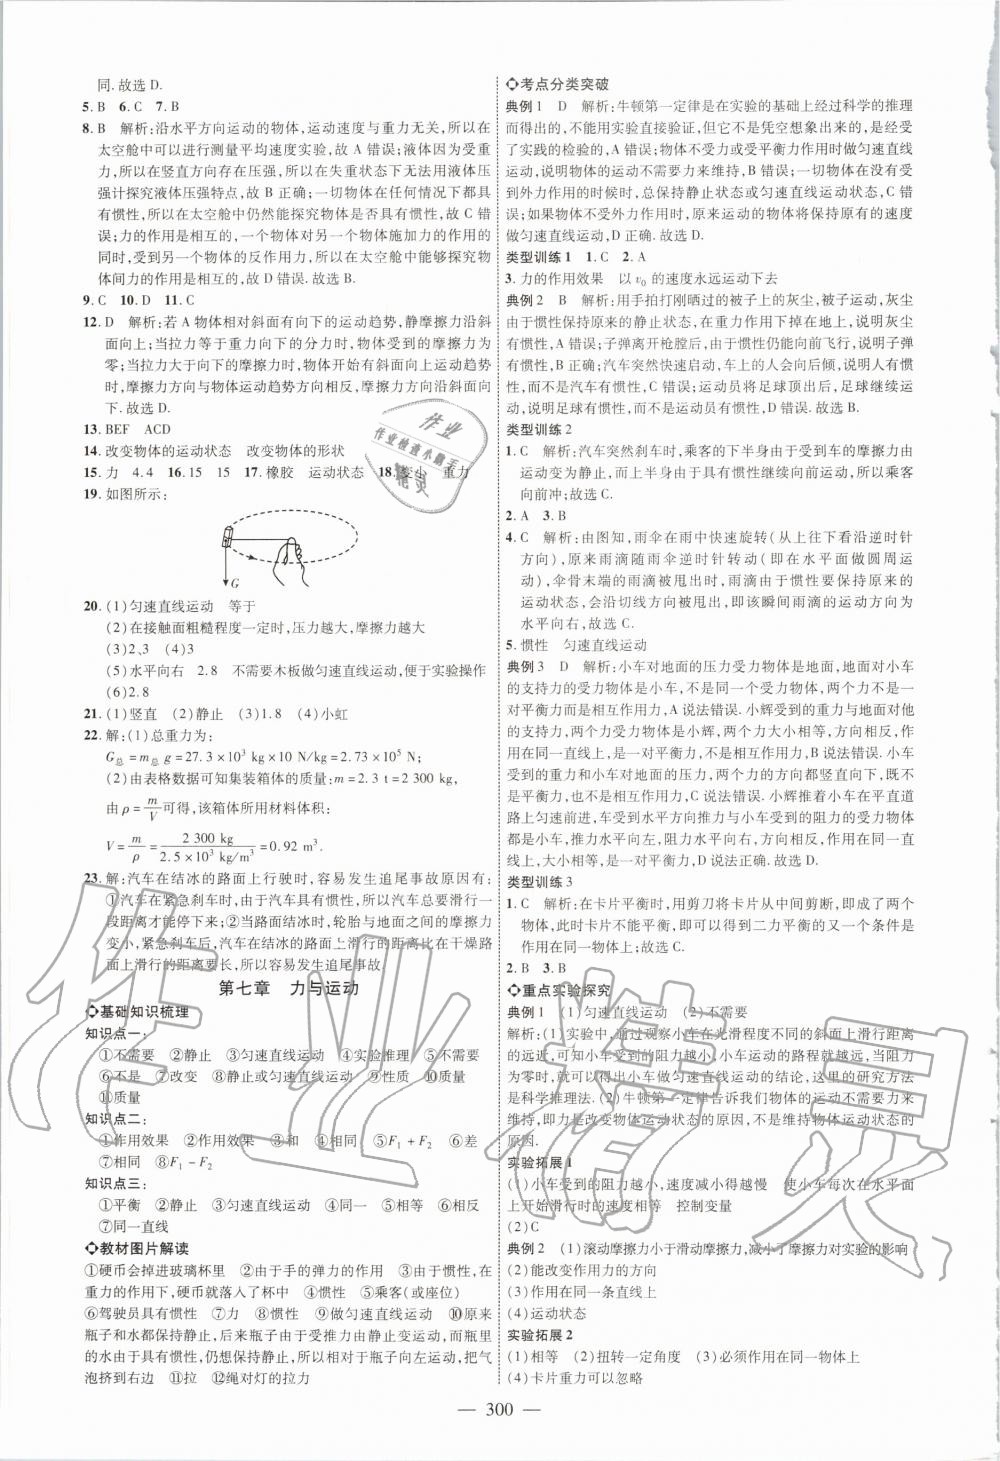 同.故选D.
5.B 6.C 7.B
8.B 解析:沿水平方向运动的物体,运动速度与重力无关,所以在
太空舱中可以进行测量平均速度实验,故A错误;液体因为受重
力,所以在竖直方向存在压强,所以在失重状态下无法用液体压
强计探究液体压强特点,故B正确;一切物体在任何情况下都具
有惯性,所以在太空舱中仍然能探究物体是否具有惯性,故C错
误;力的作用是相互的,一个物体对另一个物体施加力的作用的
同时,受到另一个物体的反作用力,所以在太空舱中能够探究物
体间力的作用是相互的,故D错误.故选B.
9.C 10.D 11.C
12.D 解析:若A物体相对斜面有向下的运动趋势,静摩擦力沿斜
面向上;当拉力等于重力向下的分力时,物体受到的摩擦力为
零;当拉力大于向下的摩擦力时,物体开始有斜面向上运动趋势
时,摩擦力方向与物体运动趋势方向相反,摩擦力方向沿斜面向
下.故选D.
13.BEF ACD
14.改变物体的运动状态 改变物体的形状
15.力 4.4 16.15 15 17.橡胶 运动状态 18.变当 重力
19.如图所示:
G
20.(1)匀速直线运动 等于
(2)在接触面粗糙程度一定时,压力越大,摩擦力越大
(3)2、3 (4)3
(5)水平向右 2.8 不需要木板做匀速直线运动,便于实验操作
(6)2.8
21.(1)竖直 (2)静止 (3)1.8 (4)小虹
22.解:(1)总重力为:
G总=m总g=27.3×10³ kg×10 N/kg=2.73×10⁵ N;
(2)由表格数据可知集装箱体的质量:m=2.3 t=2 300 kg,
由ρ=m/V可得,该箱体所用材料体积:
V=m/ρ=2 300 kg/2.5×10³ kg/m³=0.92 m³.
23.解:汽车在结冰的路面上行驶时,容易发生追尾事故原因有:
①汽车在紧急刹车时,由于汽车具有惯性,所以汽车总要滑行一
段距离才能停下来;②当路面结冰时,轮胎与地面之间的摩擦力
变小,紧急刹车后,汽车在结冰的路面上滑行的距离比在干燥路
面上滑行的距离要长,所以容易发生追尾事故.
第七章 力与运动
◇基础知识梳理
知识点一:
①不需要 ②静止 ③匀速直线运动 ④实验推理 ⑤运动
⑥不是 ⑦改变 ⑧静止或匀速直线运动 ⑨性质 ⑩质量
⑩质量
知识点二:
①作用效果 ②作用效果 ③和 ④相同 ⑤F₁+F₂ ⑥差
⑦相同 ⑧F₁-F₂
知识点三:
①平衡 ②静止 ③匀速直线运动 ④同一 ⑤相等 ⑥相反
⑦同一直线
◇教材图片解读
①硬币会掉进玻璃杯里 ②由于手的弹力的作用 ③由于惯性,在
重力的作用下,硬币就落入了杯中 ④惯性 ⑤乘客(或座位)
⑥驾驶员具有惯性 ⑦力 ⑧惯性 ⑨做匀速直线运动 ⑩原来
瓶子和水都保持静止,后来瓶子由于受推力由静止变运动,而瓶里
的水由于具有惯性,仍想保持静止,所以相对于瓶子向左运动,把气
泡挤到右边 ⑪拉 ⑫绳对灯的拉力
◇考点分类突破
典例1 D 解析:牛顿第一定律是在实验的基础上经过科学的推理
而得出的,不能用实验直接验证,但它不是凭空想象出来的,经受住
了实践的检验的,A错误;物体不受力或受平衡力作用时做匀速直线
运动,说明物体的运动不需要力来维持,B错误;一切物体在没有受
到外力作用的时候时,总保持静止状态或匀速直线运动状态,C错
误;如果物体不受外力作用时,原来运动的物体将保持原有的速度
做匀速直线运动,D正确.故选D.
类型训练1 1.C 2.A
3.力的作用效果 以v₀的速度永远运动下去
典例2 B 解析:用手拍打刚晒过的被子上的灰尘,被子运动,灰尘
由于惯性保持原来的静止状态,在重力作用下掉在地上,说明灰尘
有惯性,A错误;子弹离开枪膛后,由于惯性仍能向前飞行,说明子弹
有惯性,B正确;汽车突然快速启动,车上的人会向后倾,说明人有惯
性,而不是汽车有惯性,C错误;运动员将足球顶出后,足球继续运
动,说明足球有惯性,而不是运动员有惯性,D错误.故选B.
类型训练2
1.C 解析:汽车突然刹车时,乘客的下半身由于摩擦力的作用由
运动变为静止,而上半身由于具有惯性继续向前运动,所以乘客
向前冲;故选C.
2.A 3.B
4.C 解析:由图知,雨伞在雨中快速旋转(从上往下看沿逆时针
方向),原来雨滴随雨伞逆时针转动(即在水平面做圆周运
动),伞骨末端的雨滴被甩出时,雨滴由于惯性要保持原来的
运动状态,会沿切线方向被甩出,即该瞬间雨滴的运动方向为
水平向右,故选C.
5.惯性 匀速直线运动
典例3 D 解析:小车对地面的压力受力物体是地面,地面对小车
的支持力的受力物体是小车,不是同一个受力物体,两个力不是一
对平衡力,是相互作用力,A说法错误.小辉受到的重力与地面对他
的支持力,两个力受力物体是小辉,方向相反,作用在同一直线上,
作用在同一物体上,是一对平衡力,不是相互作用力,B说法错误.小车
受到的重力和小车对地面的压力,两个力的方向都竖直向下,既不
是平衡力,也不是相互作用力,C说法错误.小辉推小车在平直道
路上匀速前进,车受到水平方向推力与小车受到的阻力的受力物体
都是小车,推力水平向左,阻力水平向右,方向相反,作用在同一直
线上,大小相等,是一对平衡力,D说法正确.故选D.
类型训练3
1.C 解析:在卡片平衡时,用剪刀将卡片从中间剪断,即成了两个
物体,此时卡片不能平衡,即可以得出二力平衡的又一个条件是
作用在同一物体上;故选C.
2.B 3.B
◇重点实验探究
典例1 (1)匀速直线运动 (2)不需要
解析:(1)实验中,通过观察小车在光滑程度不同的斜面上滑行距离
的远近,可知小车受到的阻力越小,小车运动的路程就越远,当阻力
为零时,可以得出小车做匀速直线运动的结论,这里的研究方法
是科学推理法.(2)牛顿第一定律告诉我们物体的运动不需要力来
维持,即力是改变物体运动状态的原因,不是维持物体运动状态的
原因.
实验拓展1
(1)小车受到的阻力越小,速度减小得越慢 使小车每次在水平面
上开始滑行时的速度相等 控制变量
(2)C
典例2 (1)滚动摩擦力小于滑动摩擦力,减小了摩擦力对实验的影响
(2)能改变作用力的方向
(3)作用在同一条直线上
(4)运动状态
实验拓展2
(1)相等 (2)扭转一定角度 (3)必须作用在同一物体上
(4)卡片重力可以忽略
— 300 —
作业
作业检查小助手
精灵
作业精灵